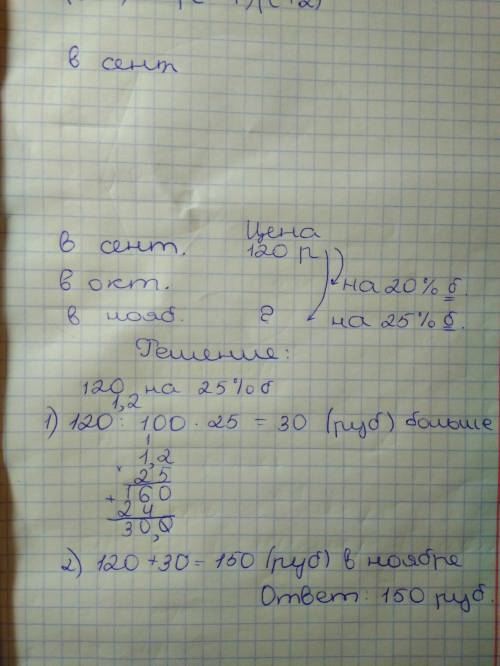 в сент
Цена
в сент. 120 р
в окт. на 20% б.
в нояб. ? на 25% б.
Решение:
120 на 25% б
1,2
1) 120 : 100 · 25 = 30 (руб) больше
1
1,2
× 25
+ 160
24
30,0
2) 120 + 30 = 150 (руб) в ноябре
Ответ: 150 руб.